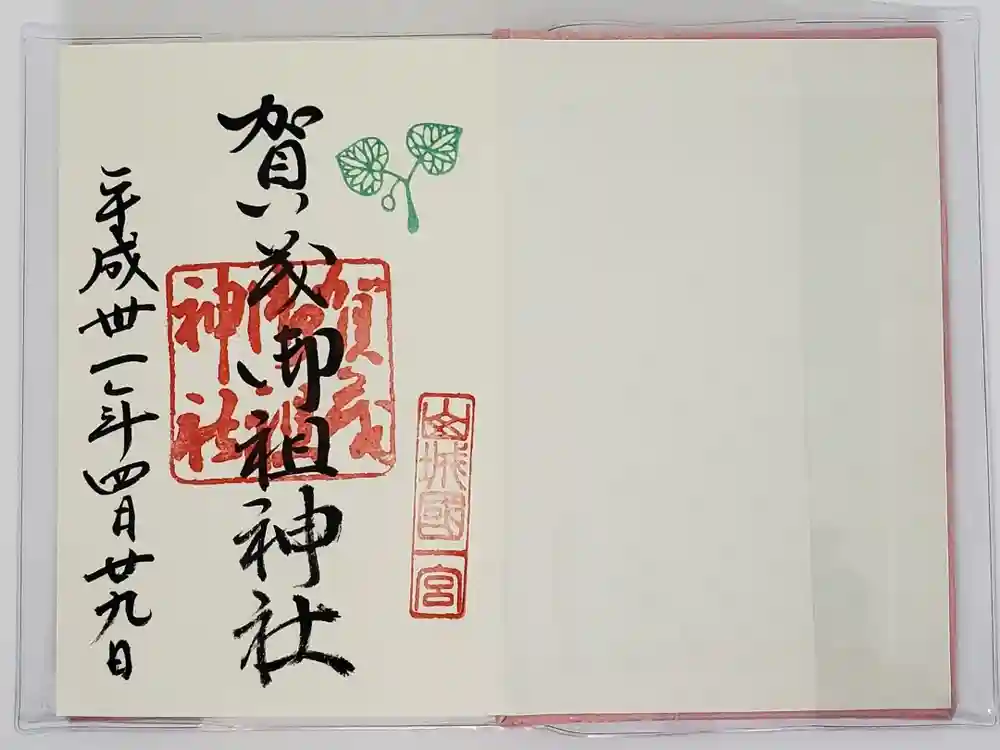 山城國一宮
賀茂御祖神社
賀茂御祖神社
平成卅一年四月廿九日